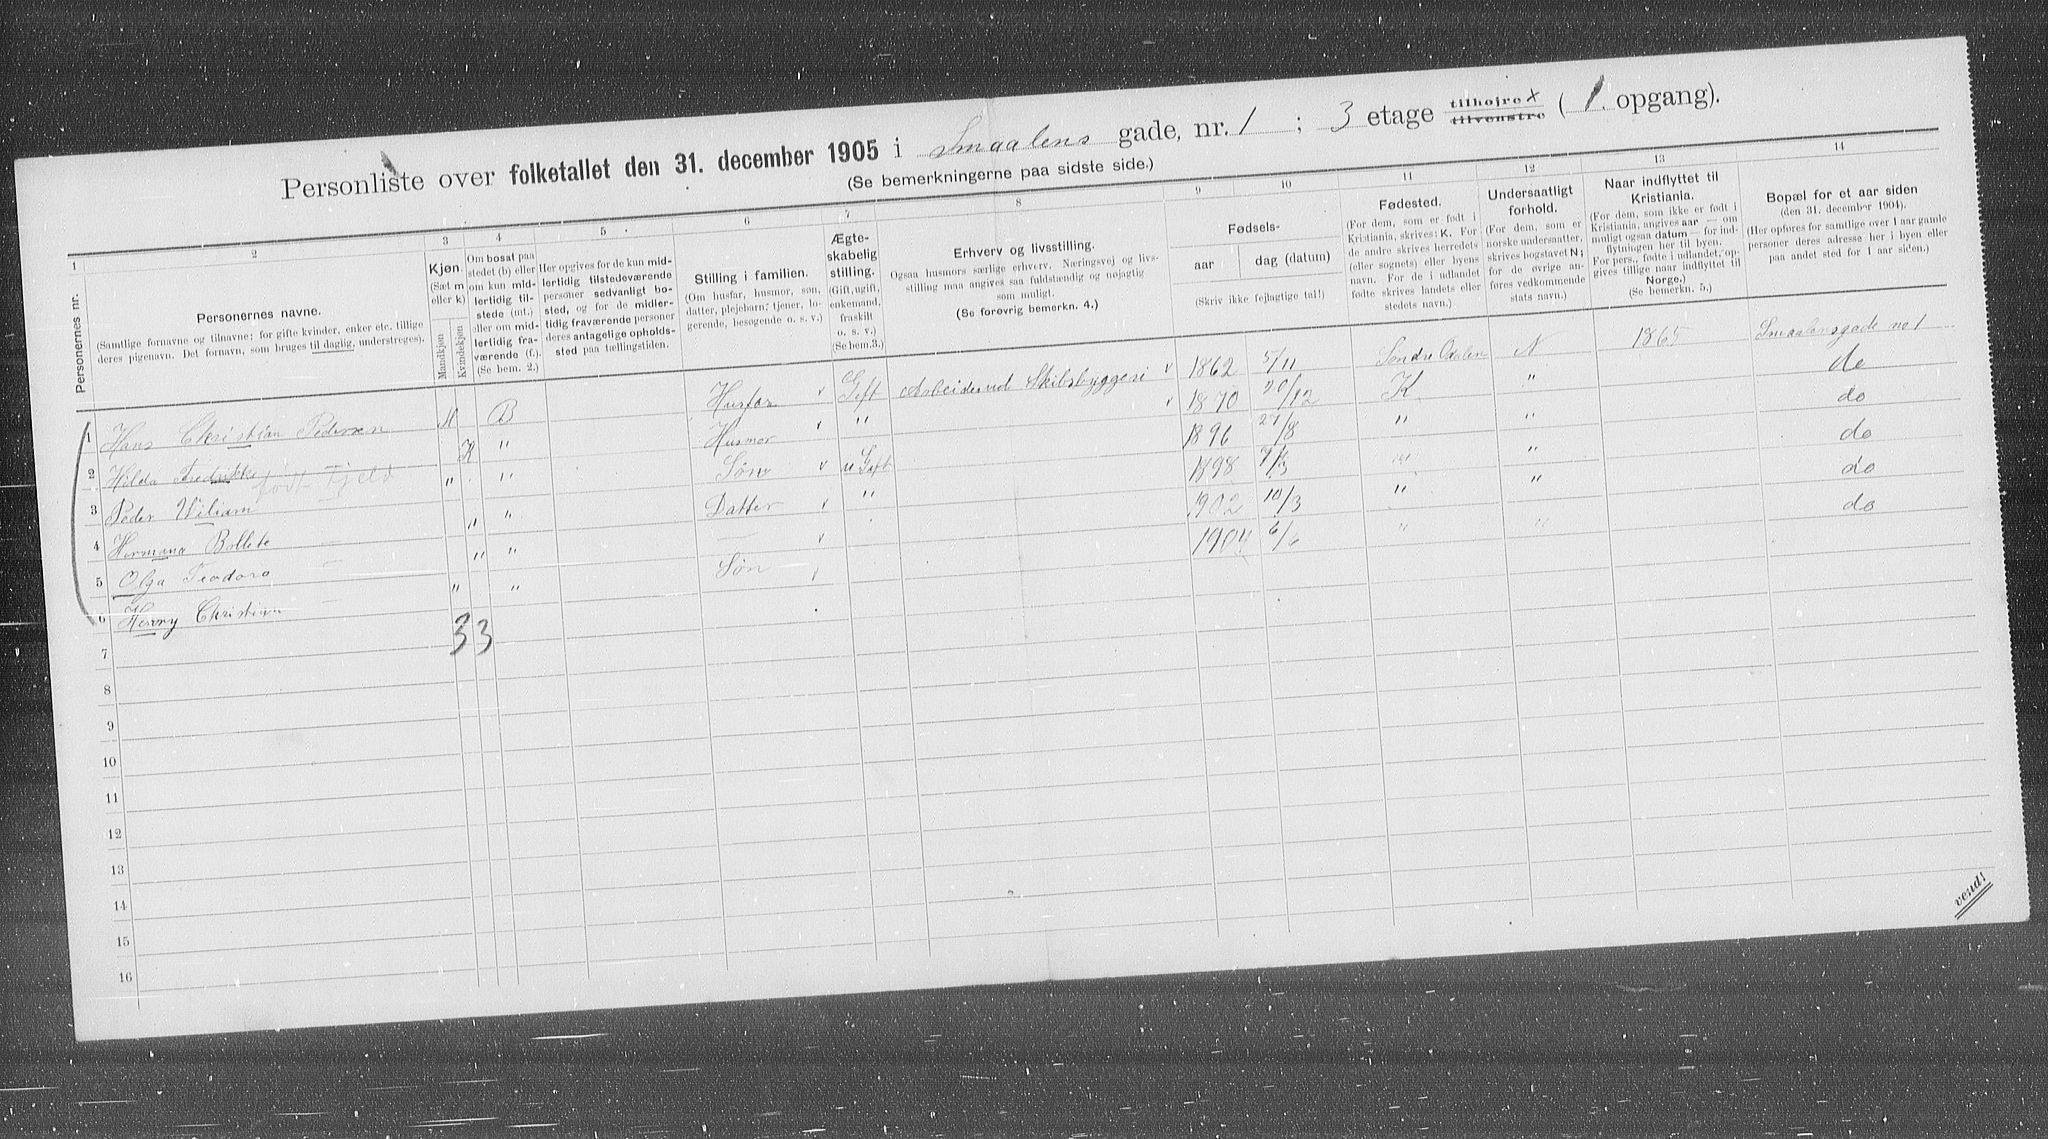 Personliste over folketallet den 31. december 1905 i Smaalens gade, nr. 1 ; 3 etage tilhøjre x tilvenstre ( 1. opgang).
(Se bemerkningerne paa sidste side.)
1 2 3 4 5 6 7 8 9 10 11 12 13 14
Personernes nr.
Personernes navne.
(Samtlige fornavne og tilnavne; for gifte kvinder, enker etc. tillige
deres pigenavn. Det fornavn, som bruges til daglig, understreges).
Kjøn.
(Sæt m
eller k)
Mandkjøn
Kvindekjøn
Om bosat paa
stedet (b) eller
om kun mid-
lertidig til-
stede (mt.)
eller om mid-
lertidig fra-
værende (f.).
(Se bem. 2.)
Her opgives for de kun mid-
lertidig tilstedeværende
personer sedvanligt bo-
sted, og for de midler-
tidig fraværende personer
deres antagelige opholds-
sted paa tællingstiden.
Stilling i familien.
(Om husfar, husmor, søn,
datter, plejebarn; tjener, lo-
gerende, besøgende o. s. v.)
Ægte-
skabelig
stilling.
(Gift, ugift,
enkemand,
fraskilt
o. s. v.)
(Se bem. 3.)
Erhverv og livsstilling.
Ogsaa husmors særlige erhverv. Næringsvej og livs-
stilling maa angives saa fuldstændig og nøjagtig
som muligt.
(Se forøvrig bemerkn. 4.)
Fødsels-
aar dag (datum)
(Skriv ikke fejlagtige tal!)
Fødested.
(For dem, som er født i
Kristiania, skrives: K. For
de andre skrives herredets
(eller sognets) eller byens
navn. For de i udlandet
fødte skrives landets eller
stedets navn.)
Undersaatligt
forhold.
(For dem, som er
norske undersaatter,
skrives bogstavet N;
for de øvrige an-
føres vedkommende
stats navn.)
Naar indflyttet til
Kristiania.
(For dem, som ikke er født i
Kristiania, angives aar — om
muligt ogsaa datum — for ind-
flytningen her til byen.
For pers., fødte i udlandet, op-
gives tillige naar indflyttet til
Norge.)
(Se bemerkn. 5.)
Bopæl for et aar siden
(den 31. december 1904).
(Her opføres for samtlige over 1 aar gamle
personer deres adresse her i byen eller
paa andet sted for 1 aar siden.)
1 Hans Christian Pedersen M B Husfar Gift Arbeider ved Skibsbyggeri 1862 5/11 Søndre Odalen N 1865 Smaalensgade no 1
2 Hilda Fredrikke født Fjeld K " Husmor " 1870 20/12 K " do
3 Peder Wiliam " " Søn u Gift 1896 27/8 " " do
4 Hermana Bollete " " Datter " 1898 " " do
5 Olga Teodora " " — 1902 10/3 " " do
6 Henny Christian " " Søn 1904 6/6 " " do
3 3
7
8
9
10
11
12
13
14
15
16
vend!